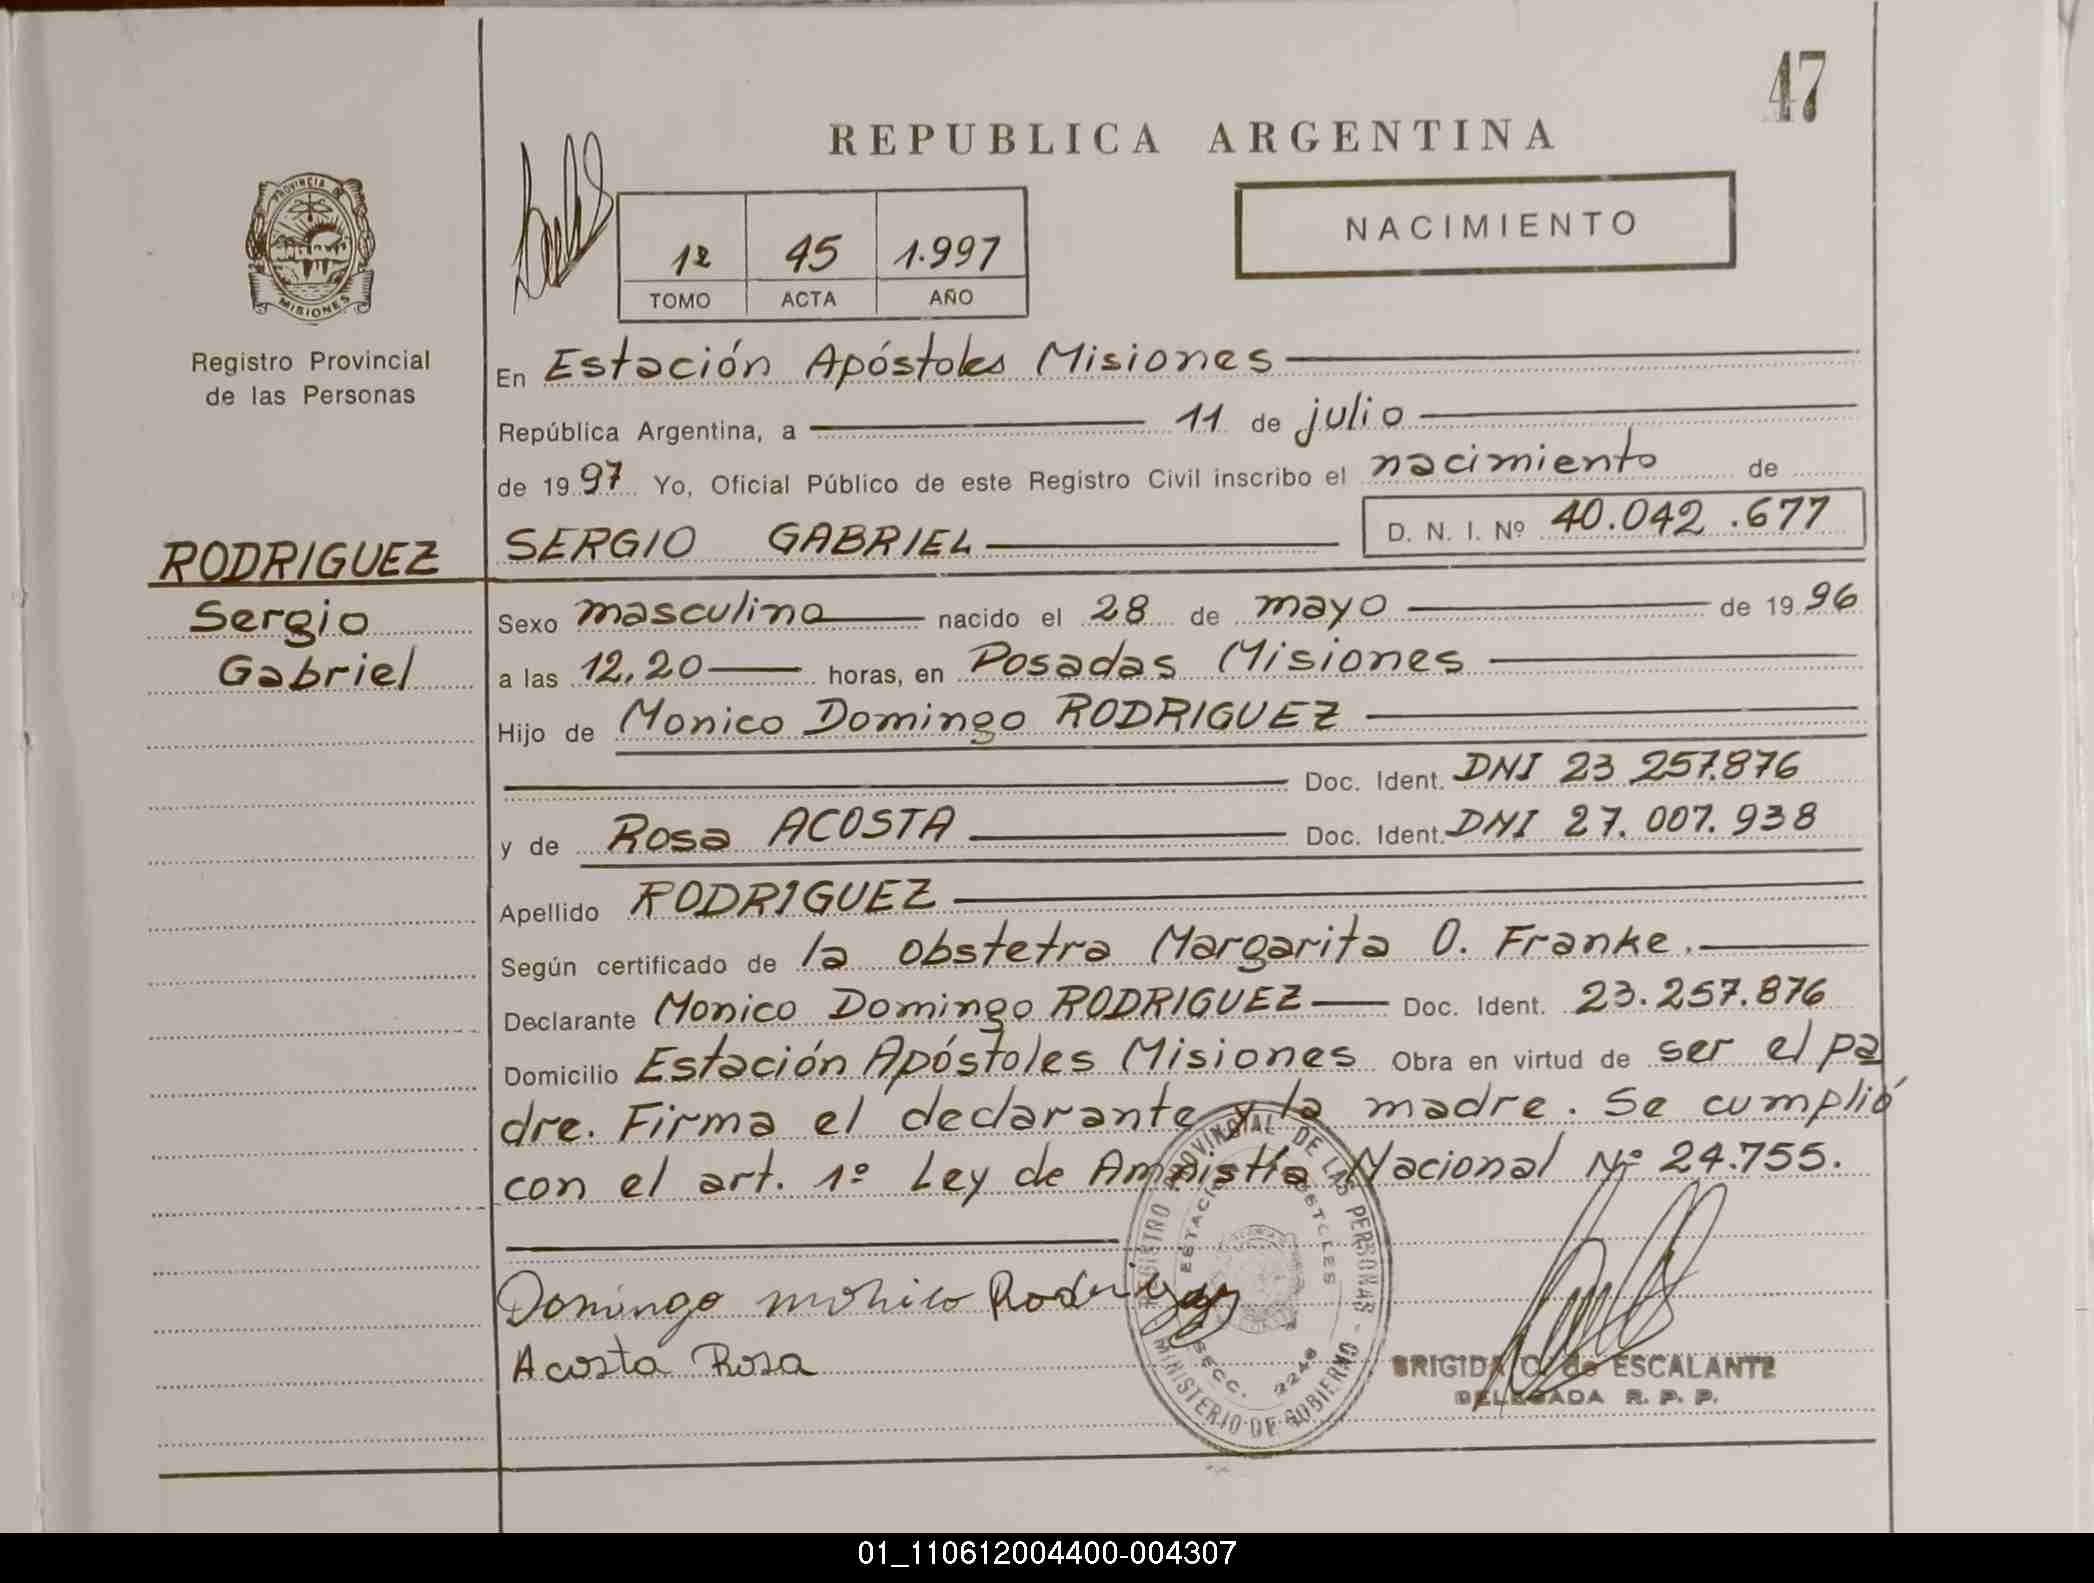 47
REPUBLICA ARGENTINA
NACIMIENTO
PROVINCIA DE
MISIONES
1º 45 1.997
TOMO ACTA AÑO
Registro Provincial
de las Personas
En Estación Apóstoles Misiones
República Argentina, a 11 de julio
de 1997 Yo, Oficial Público de este Registro Civil inscribo el nacimiento de
SERGIO GABRIEL D. N. I. Nº 40.042.677
RODRIGUEZ
Sergio
Gabriel
Sexo masculino nacido el 28 de mayo de 1996
a las 12,20 horas, en Posadas Misiones
Hijo de Monico Domingo RODRIGUEZ
Doc. Ident. DNI 23 257.876
y de Rosa ACOSTA Doc. Ident. DNI 27.007.938
Apellido RODRIGUEZ
Según certificado de la obstetra Margarita O. Franke.
Declarante Monico Domingo RODRIGUEZ Doc. Ident. 23.257.876
Domicilio Estación Apóstoles Misiones Obra en virtud de ser el pa
dre. Firma el declarante y la madre. Se cumplió
con el art. 1º Ley de Amnistía Nacional Nº 24.755.
REGISTRO PROVINCIAL DE LAS PERSONAS - MINISTERIO DE GOBIERNO
ESTACION APOSTOLES
SECC. 2248
Domingo monico Rodriguez
Acosta Rosa
BRIGIDA O. de ESCALANTE
DELEGADA R. P. P.
01_110612004400-004307